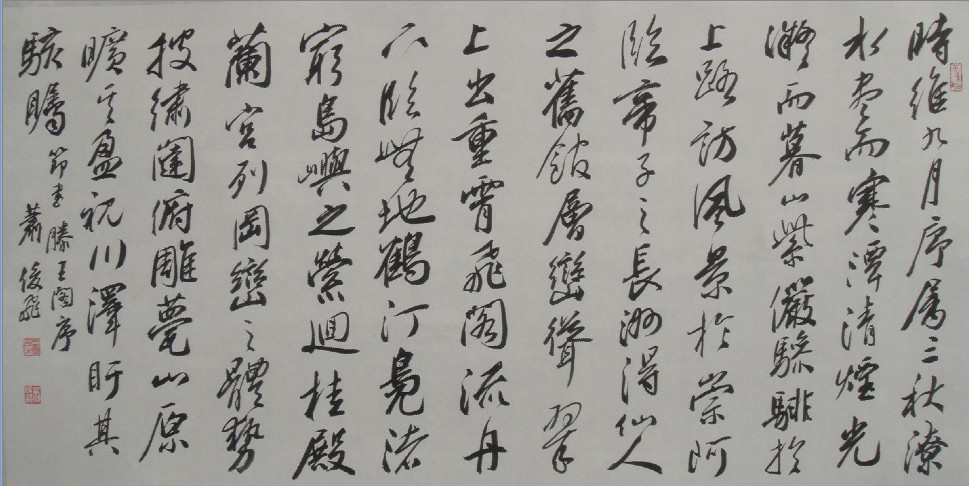 時維九月序屬三秋潦
水盡而寒潭清煙光
凝而暮山紫儼驂騑於
上路訪風景於崇阿
臨帝子之長洲得仙人
之舊館層巒聳翠
上出重霄飛閣流丹
下臨無地鶴汀鳧渚
窮島嶼之縈迴桂殿
蘭宮列岡巒之體勢
披繡闥俯雕甍山原
曠其盈視川澤盱其
駭矚 節書滕王閣序
蕭俊飛